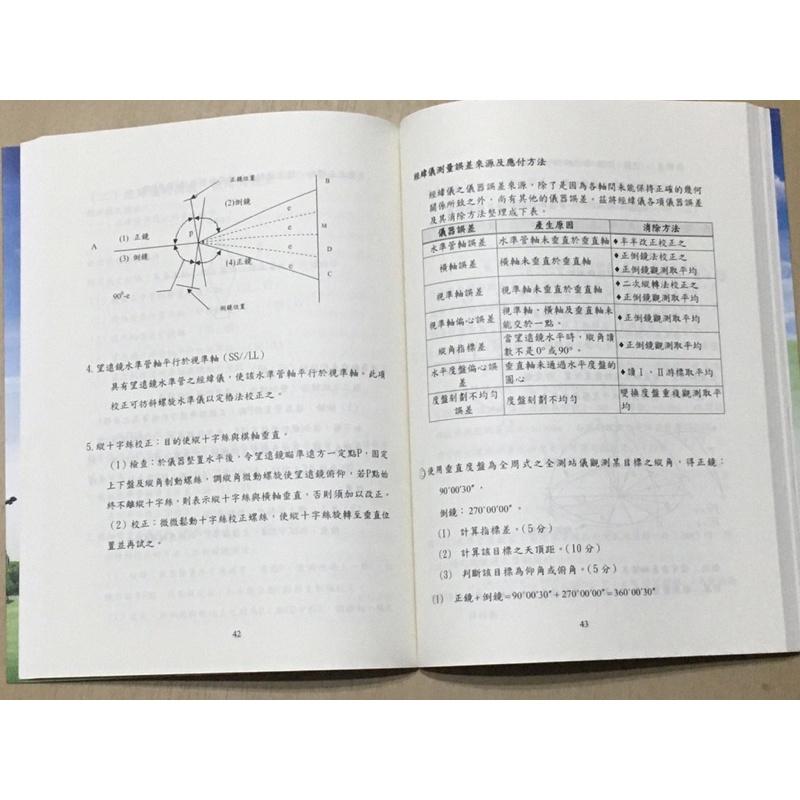 正鏡位置
B
(2)倒鏡
e
A
(1) 正鏡
P
e
M
(3) 倒鏡
e
D
(4)正鏡
e
C
90⁰-e
倒鏡位置
4.望遠鏡水準管軸平行於視準軸(SS//LL)
具有望遠鏡水準管之經緯儀,使該水準管軸平行於視準軸。此項
校正可彷斜螺旋水準儀以定樁法校正之。
5.縱十字絲校正:目的使縱十字絲與橫軸垂直。
(1)檢查:於儀器整置水平後,令望遠鏡瞄準遠方一定點P,固定
上下盤及縱角制動螺絲,調縱角微動螺旋使望遠鏡俯仰,若P點始
終不離縱十字絲,則表示縱十字絲與橫軸垂直,否則須加以改正。
(2)校正:微微鬆動十字絲校正螺絲,使縱十字絲旋轉至垂直位
置並再試之。
42
經緯儀測量誤差來源及應付方法
經緯儀之儀器誤差來源,除了是因為各軸間未能保持正確的幾何
關係所致之外,尚有其他的儀器誤差。茲將經緯儀各項儀器誤差
及其消除方法整理成下表。
儀器誤差 產生原因 消除方法
水準管軸誤差 水準管軸未垂直於垂直軸 ♦半半改正校正之
橫軸誤差 橫軸未垂直於垂直軸 ♦正倒鏡法校正之
♦正倒鏡觀測取平均
視準軸誤差 視準軸未垂直於垂直軸 ♦二次縱轉法校正之
♦正倒鏡觀測取平均
視準軸偏心誤差 視準軸、橫軸及垂直軸未
能交於一點。 ♦正倒鏡觀測取平均
縱角指標差 當望遠鏡水平時,縱角讀
數不是0°或90°。 ♦正倒鏡觀測取平均
水平度盤偏心誤
差 垂直軸未通過水平度盤的
圓心 ♦讀Ⅰ、Ⅱ游標取平均
度盤刻劃不均勻
誤差 度盤刻劃不均勻 變換度盤重複觀測取平
均
使用垂直度盤為全周式之全測站儀觀測某目標之縱角,得正鏡:
90°00'30",
倒鏡:270°00'00"。
(1) 計算指標差。(5分)
(2) 計算該目標之天頂距。(10分)
(3) 判斷該目標為仰角或俯角。(5分)
(1) 正鏡+倒鏡=90°00'30"+270°00'00"=360°00'30"
43